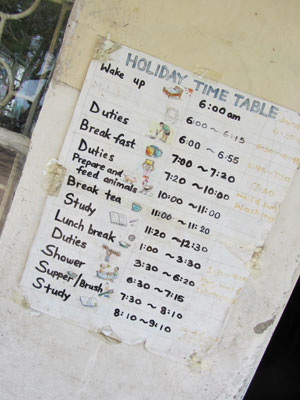 HOLIDAY TIME TABLE
Wake up 6:00am
6:00 ~ 6:15
Duties 6:00 ~ 6:55
Break-fast 7:00 ~ 7:20
Duties 7:20 ~ 10:00
Prepare and
feed animals 10:00 ~ 11:00
Break tea 11:00 ~ 11:20
Study 11:20 ~ 12:30
Lunch break 1:00 ~ 3:30
Duties 3:30 ~ 6:20
Shower 6:30 ~ 7:15
Supper/Brush 7:30 ~ 8:10
Study 8:10 ~ 9:10